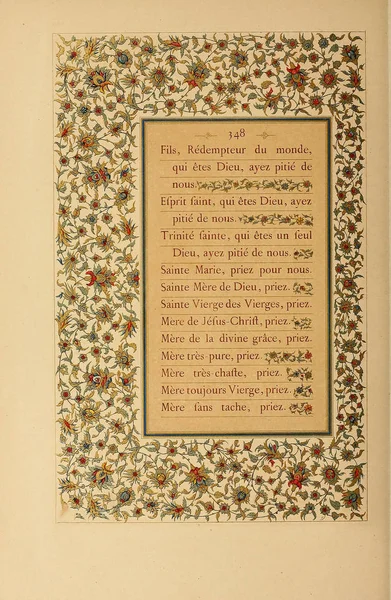 348
Fils, Rédempteur du monde,
qui êtes Dieu, ayez pitié de
nous.
Eſprit ſaint, qui êtes Dieu, ayez
pitié de nous.
Trinité ſainte, qui êtes un ſeul
Dieu, ayez pitié de nous.
Sainte Marie, priez pour nous.
Sainte Mère de Dieu, priez.
Sainte Vierge des Vierges, priez.
Mere de Jéſus-Chriſt, priez.
Mère de la divine grâce, priez.
Mère très-pure, priez.
Mère très-chaſte, priez.
Mère toujours Vierge, priez.
Mère ſans tache, priez.